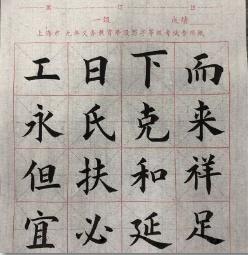 一级 成绩
上海市九年义务教育毕设写字等级考试专用纸
工日下而
永氏克来
但扶和祥
宜必延足